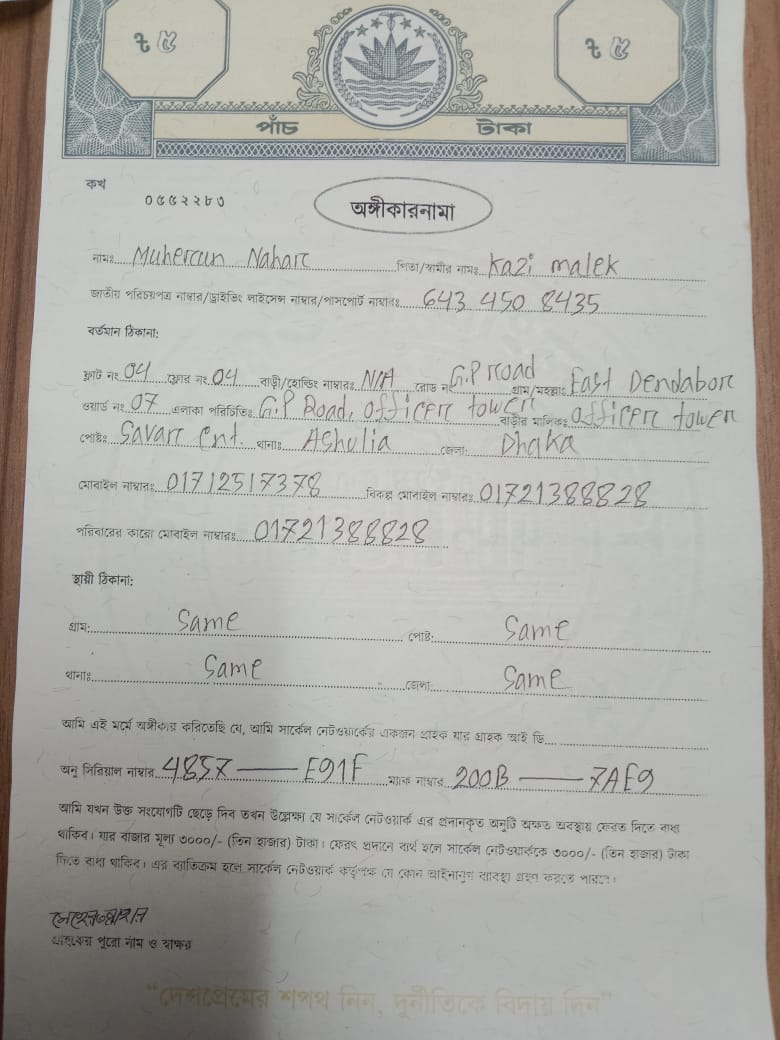 ৳ ৫ ৳ ৫
পাঁচ টাকা
কখ
০৫৫২২৮৩
অঙ্গীকারনামা
নামঃ Muhercun Naharc পিতা/স্বামীর নামঃ Kazi malek
জাতীয় পরিচয়পত্র নাম্বার/ড্রাইভিং লাইসেন্স নাম্বার/পাসপোর্ট নাম্বারঃ 643 450 8435
বর্তমান ঠিকানা:
ফ্লাট নং 04 ফ্লোর নং 04 বাড়ী/হোল্ডিং নাম্বারঃ N/A রোড নং G.P road গ্রাম/মহল্লাঃ East Dendabor
ওয়ার্ড নং 07 এলাকা পরিচিতিঃ G.P Road, officerc tower বাড়ীর মালিকঃ officerc tower
পোষ্টঃ Savarc Cnt. থানাঃ Ashulia জেলা: Dhaka
মোবাইল নাম্বারঃ 01712517378 বিকল্প মোবাইল নাম্বারঃ 01721388828
পরিবারের কারো মোবাইল নাম্বারঃ 01721388828
স্থায়ী ঠিকানা:
গ্রাম: Same পোষ্ট: Same
থানাঃ Same জেলা: Same
আমি এই মর্মে অঙ্গীকার করিতেছি যে, আমি সার্কেল নেটওয়ার্কের একজন গ্রাহক যার গ্রাহক আই ডি
অনু সিরিয়াল নাম্বার 4857 — E91F ম্যাক নাম্বার 200B — 7AE9
আমি যখন উক্ত সংযোগটি ছেড়ে দিব তখন উল্লেক্ষ্য যে সার্কেল নেটওয়ার্ক এর প্রদানকৃত অনুটি অক্ষত অবস্থায় ফেরত দিতে বাধ্য
থাকিব। যার বাজার মূল্য ৩০০০/- (তিন হাজার) টাকা। ফেরৎ প্রদানে ব্যর্থ হলে সার্কেল নেটওয়ার্ককে ৩০০০/- (তিন হাজার) টাকা
দিতে বাধ্য থাকিব। এর ব্যতিক্রম হলে সার্কেল নেটওয়ার্ক কর্তৃপক্ষ যে কোন আইনানুগ ব্যবস্থা গ্রহণ করতে পারবে।
গ্রাহকের পুরো নাম ও স্বাক্ষর
“দেশপ্রেমের শপথ নিন, দুর্নীতিকে বিদায় দিন”